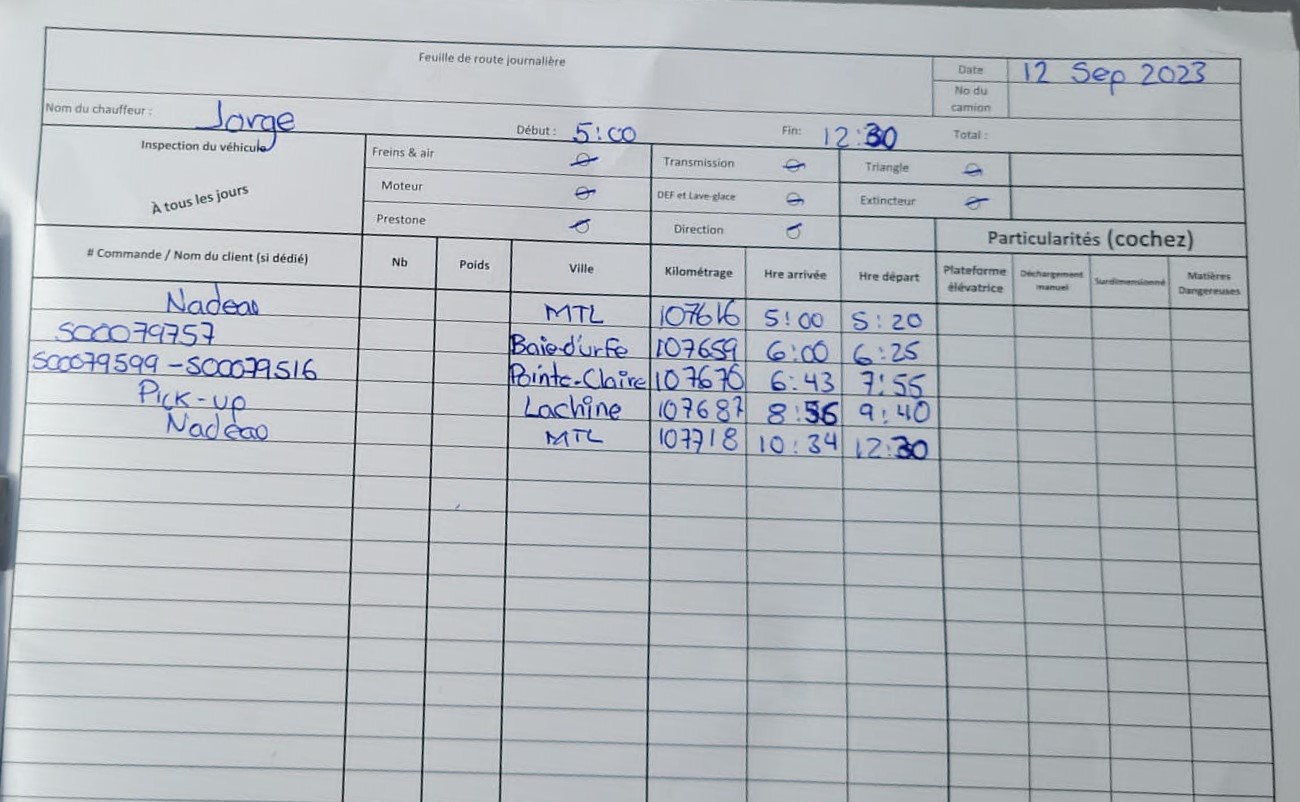 Feuille de route journalière
Date 12 Sep 2023
No du camion
Nom du chauffeur : Jorge Début : 5:00 Fin: 12:30 Total :
Inspection du véhicule
À tous les jours
Freins & air Transmission Triangle
Moteur DEF et Lave-glace Extincteur
Prestone Direction
Particularités (cochez)
# Commande / Nom du client (si dédié) Nb Poids Ville Kilométrage Hre arrivée Hre départ Plateforme élévatrice Déchargement manuel Surdimensionné Matières Dangereuses
Nadeao MTL 107616 5:00 5:20
SO0079757 Baie-d'urfe 107659 6:00 6:25
SO0079599 - SO0079516 Pointe-Claire 107670 6:43 7:55
Pick-up Lachine 107687 8:56 9:40
Nadeao MTL 107718 10:34 12:30